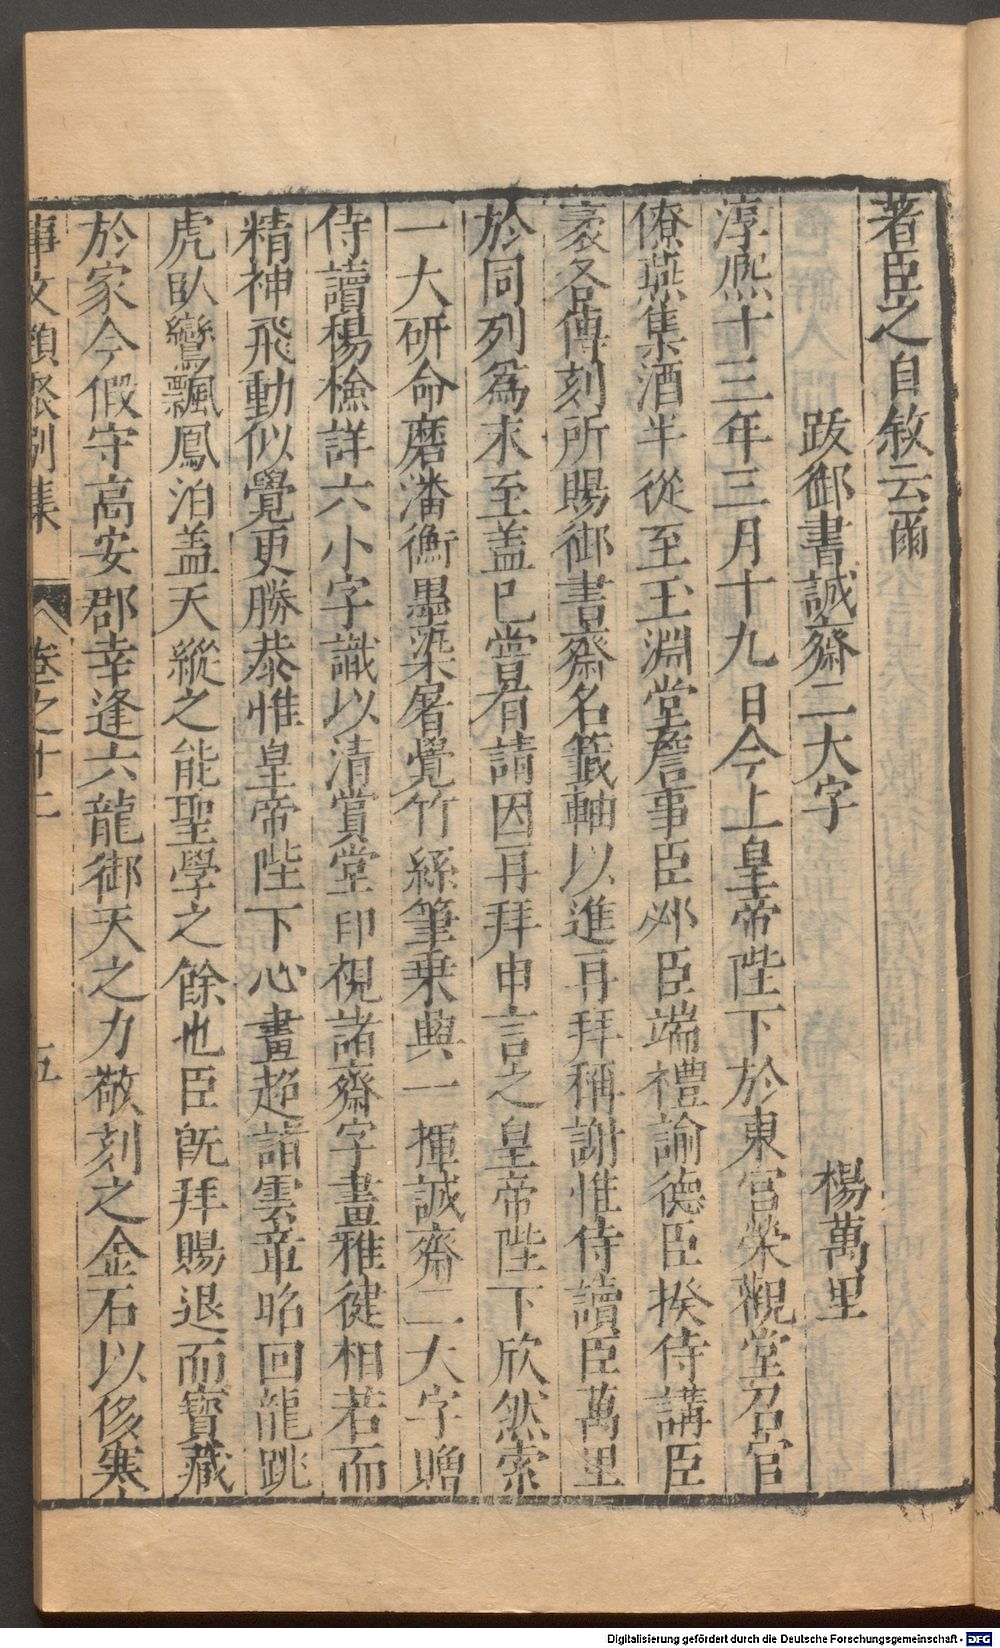 著臣之自敘云爾
跋御書誠齋二大字
楊萬里
淳熈十三年三月十九日今上皇帝陛下於東宫榮觀堂召官
僚燕集酒半從至玉淵堂詹事臣邲臣端禮諭德臣揆侍講臣
袤各傳刻所賜御書齋名籤軸以進再拜稱謝惟侍讀臣萬里
於同列爲末至盖已甞有請因再拜申言之皇帝陛下欣然索
一大研命磨潘衡墨染屠覺竹絲筆乗興一揮誠齋二大字贈
侍讀楊檢詳六小字識以清賞堂印視諸齋字畫雅健相若而
精神飛動似覺更勝恭惟皇帝陛下心畫超詣雲章昭回龍跳
虎臥鸞飄鳳泊盖天縱之能聖學之餘也臣旣拜賜退而寳藏
於家今假守高安郡幸逢六龍御天之力敬刻之金石以侈寒
事文類聚别集
卷之十二
五
Digitalisierung gefördert durch die Deutsche Forschungsgemeinschaft - DFG